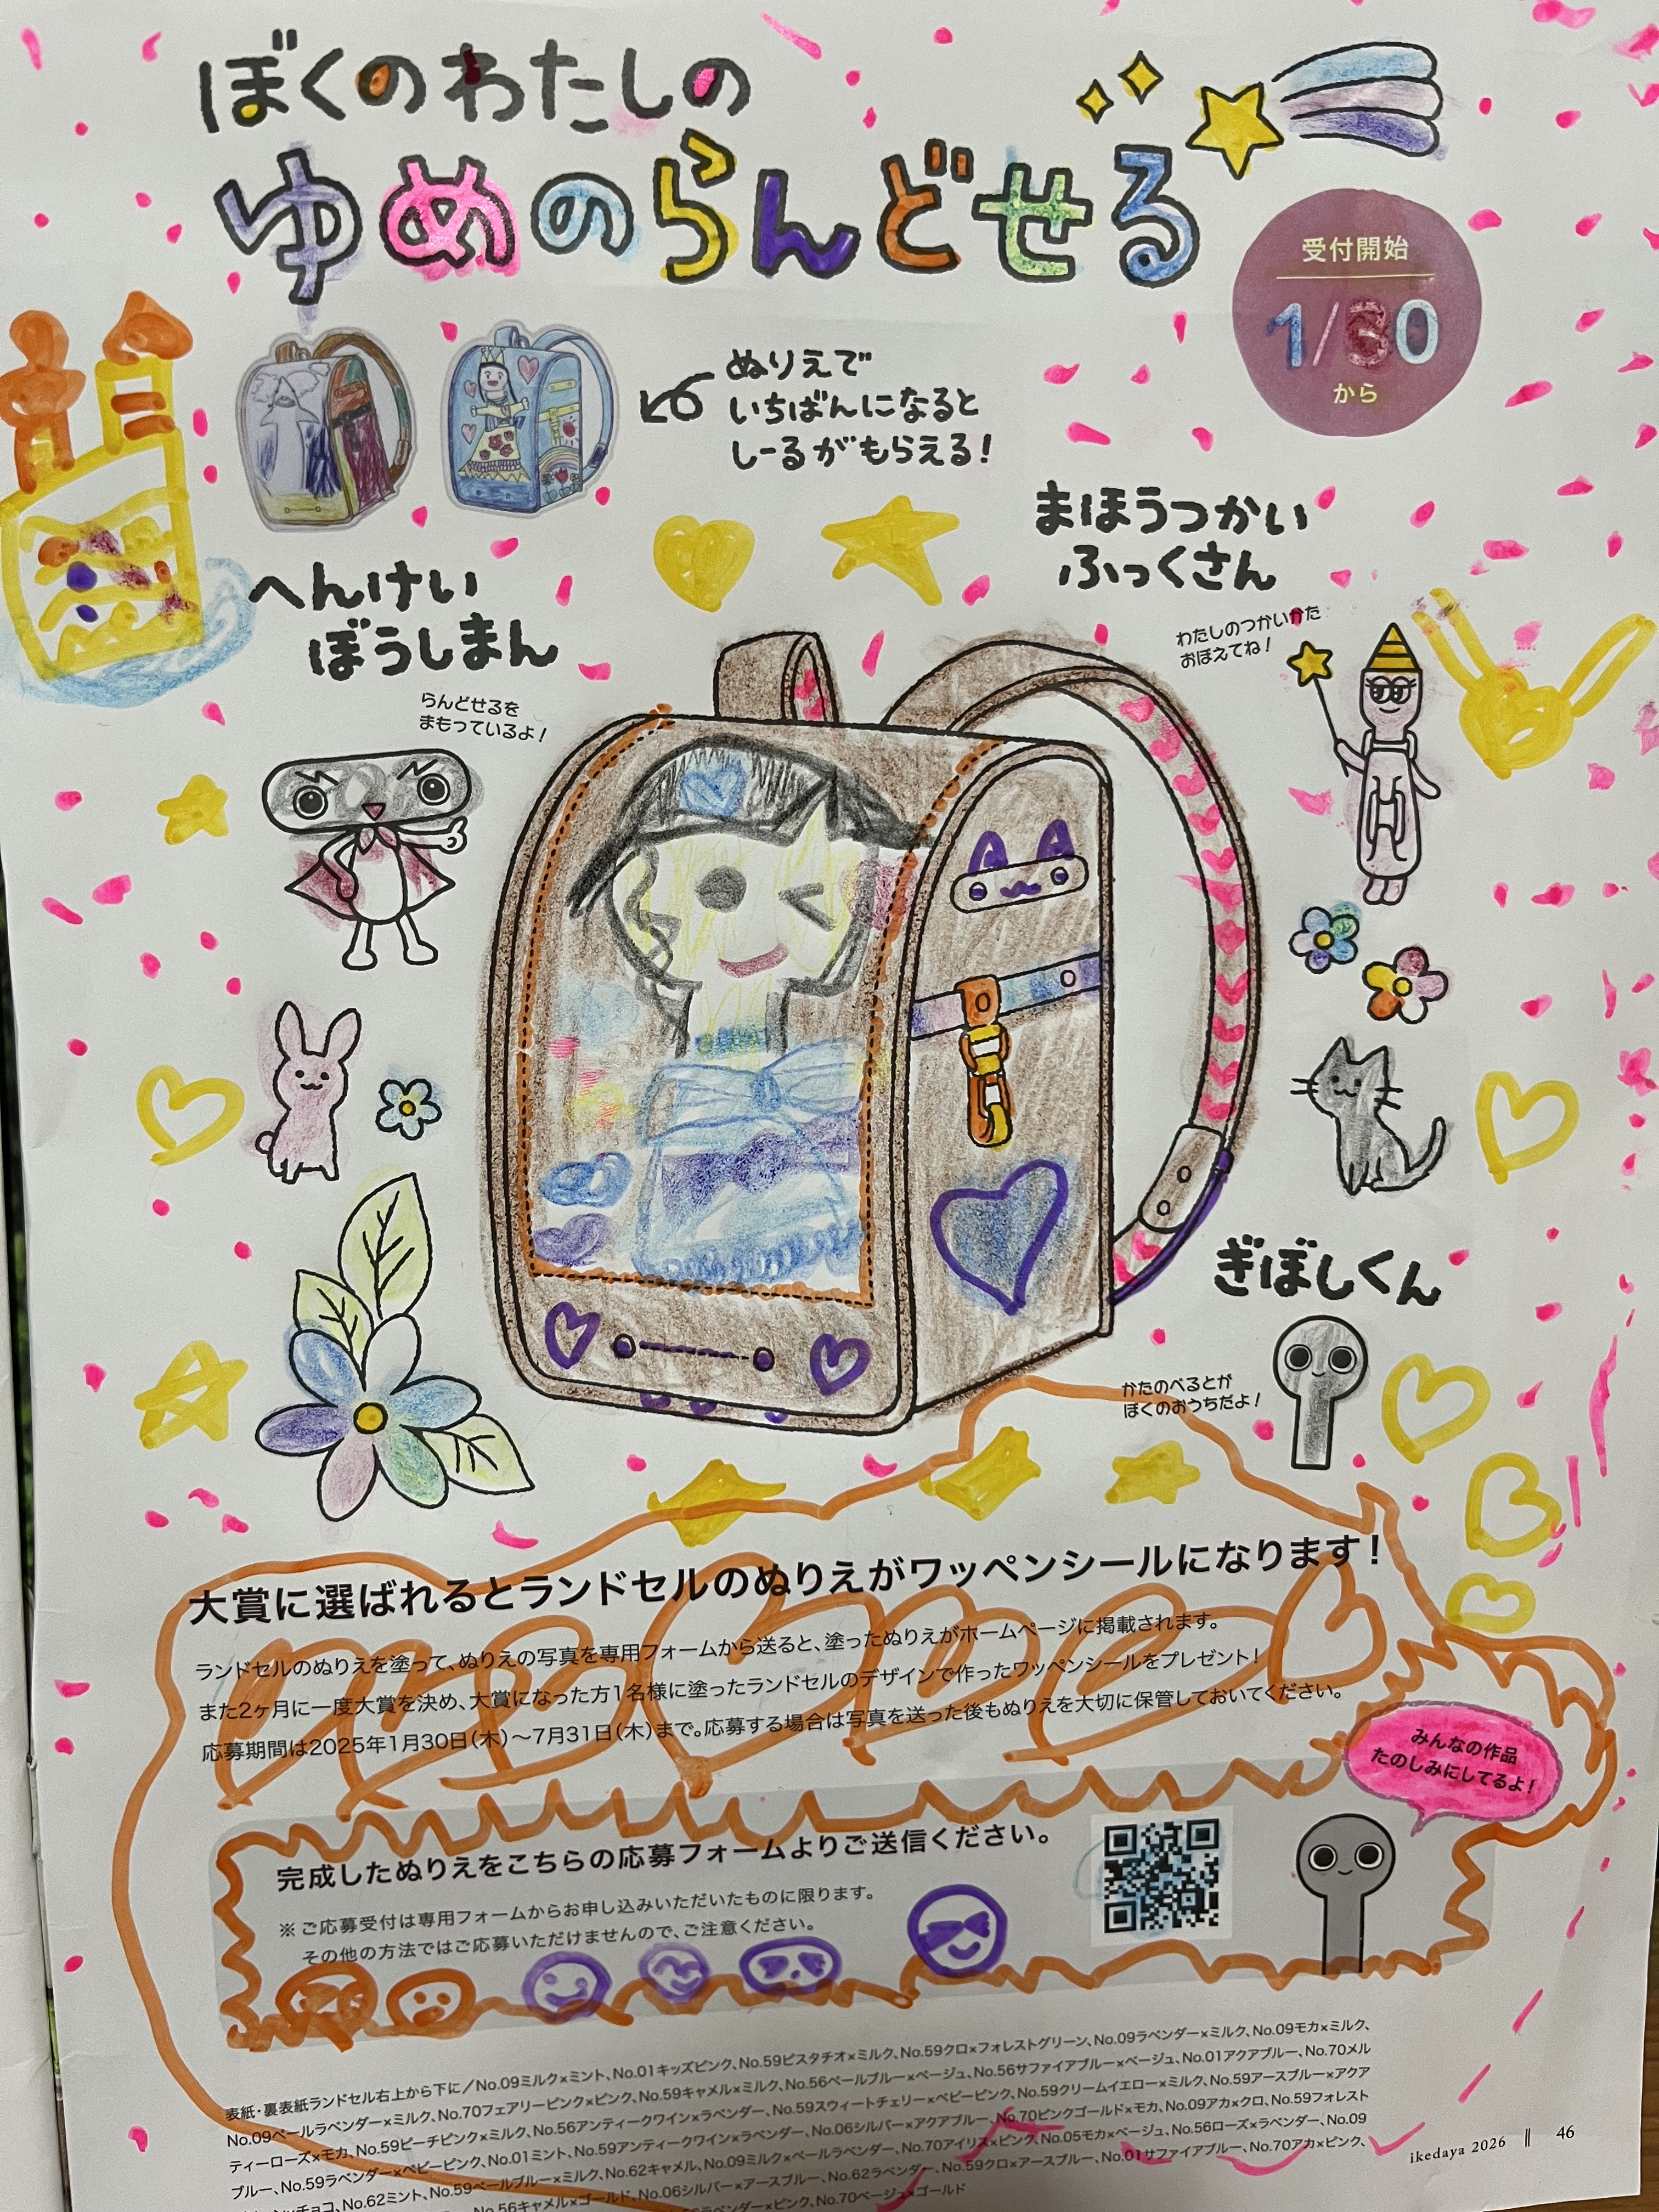 ぼくのわたしの
ゆめのらんどせる
受付開始
1/30
から
ぬりえで
いちばんになると
しーるがもらえる!
まほうつかい
ふっくさん
わたしのつかいかた
おぼえてね!
へんけい
ぼうしまん
らんどせるを
まもっているよ!
ぎぼしくん
かたのべるとが
ぼくのおうちだよ!
大賞に選ばれるとランドセルのぬりえがワッペンシールになります!
ランドセルのぬりえを塗って、ぬりえの写真を専用フォームから送ると、塗ったぬりえがホームページに掲載されます。
また2ヶ月に一度大賞を決め、大賞になった方1名様に塗ったランドセルのデザインで作ったワッペンシールをプレゼント!
応募期間は2025年1月30日(木)〜7月31日(木)まで。応募する場合は写真を送った後もぬりえを大切に保管しておいてください。
みんなの作品
たのしみにしてるよ!
完成したぬりえをこちらの応募フォームよりご送信ください。
※ご応募受付は専用フォームからお申し込みいただいたものに限ります。
その他の方法ではご応募いただけませんので、ご注意ください。
表紙・裏表紙ランドセル右上から下に/No.09ミルク×ミント、No.01キッズピンク、No.59ピスタチオ×ミルク、No.59クロ×フォレストグリーン、No.09ラベンダー×ミルク、No.09モカ×ミルク、
No.09ペールラベンダー×ミルク、No.70フェアリーピンク×ピンク、No.59キャメル×ミルク、No.56ペールブルー×ベージュ、No.56サファイアブルー×ベージュ、No.01アクアブルー、No.70メル
ティーローズ×モカ、No.59ピーチピンク×ミルク、No.56アンティークワイン×ラベンダー、No.59スウィートチェリー×ベビーピンク、No.59クリームイエロー×ミルク、No.59アースブルー×アクア
ブルー、No.59ラベンダー×ベビーピンク、No.01ミント、No.59アンティークワイン×ラベンダー、No.06シルバー×アクアブルー、No.70ピンクゴールド×モカ、No.09アカ×クロ、No.59フォレスト
×チョコ、No.62ミント、No.59ペールブルー×ミルク、No.62キャメル、No.09ミルク×ペールラベンダー、No.70アイリス×ピンク、No.05モカ×ベージュ、No.56ローズ×ラベンダー、No.09
No.56キャメル×ゴールド、No.06シルバー×アースブルー、No.62ラベンダー、No.59クロ×アースブルー、No.01サファイアブルー、No.70アカ×ピンク、
ラベンダー×ピンク、No.70ベージュ×ゴールド
ikedaya 2026 || 46